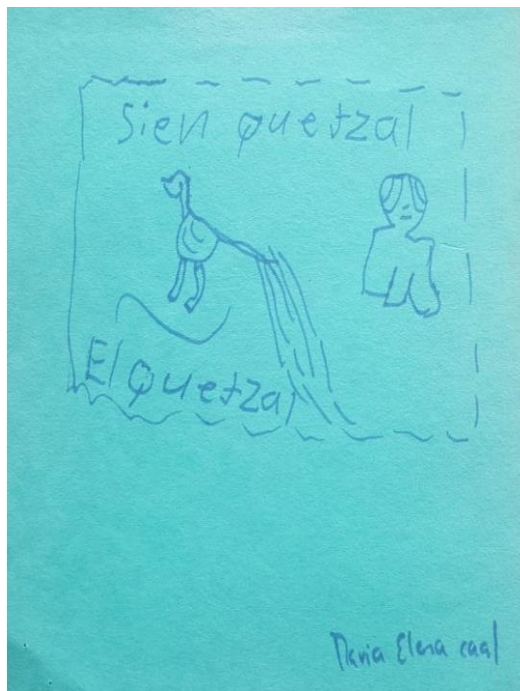 Sien quetzal
El quetzal
Maria Elena caal